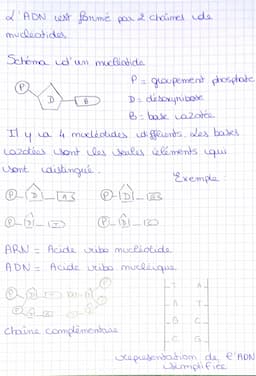 L'ADN est formé par 2 chaînes de
nucléotides.
Schéma d'un nucléotide
P = groupement phosphate
P D B
D = désoxyribose
B = base azotée
Il y a 4 nucléotides différents. Les bases
azotées sont les seules éléments qui
sont distingué.
Exemple :
P D A P D G
P D T P D C
ARN = Acide ribo nucléotide
ADN = Acide ribo nucléique
T A
A T
G C
C G
chaîne complémentaire
représentation de l'ADN
simplifiée